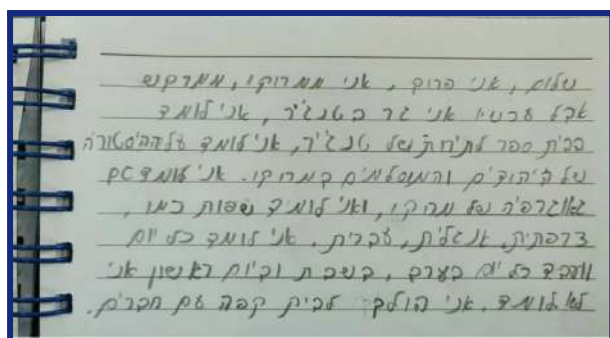 שלום, אני פרוק, אני ממרוקו, ממרקש
אבל עכשיו אני גר בטנג'יר, אני לומד
בבית ספר לתיירות של טנג'יר, אני לומד על ההיסטוריה
של היהודים והמוסלמים במרוקו. אני לומד גם
גאוגרפיה של מרוקו, ואני לומד שפות כמו,
צרפתית, אנגלית, עברית. אני לומד כל יום
ועובד כל יום בערב, בשבת וביום ראשון אני
לא לומד. אני הולך לבית קפה עם חברים.